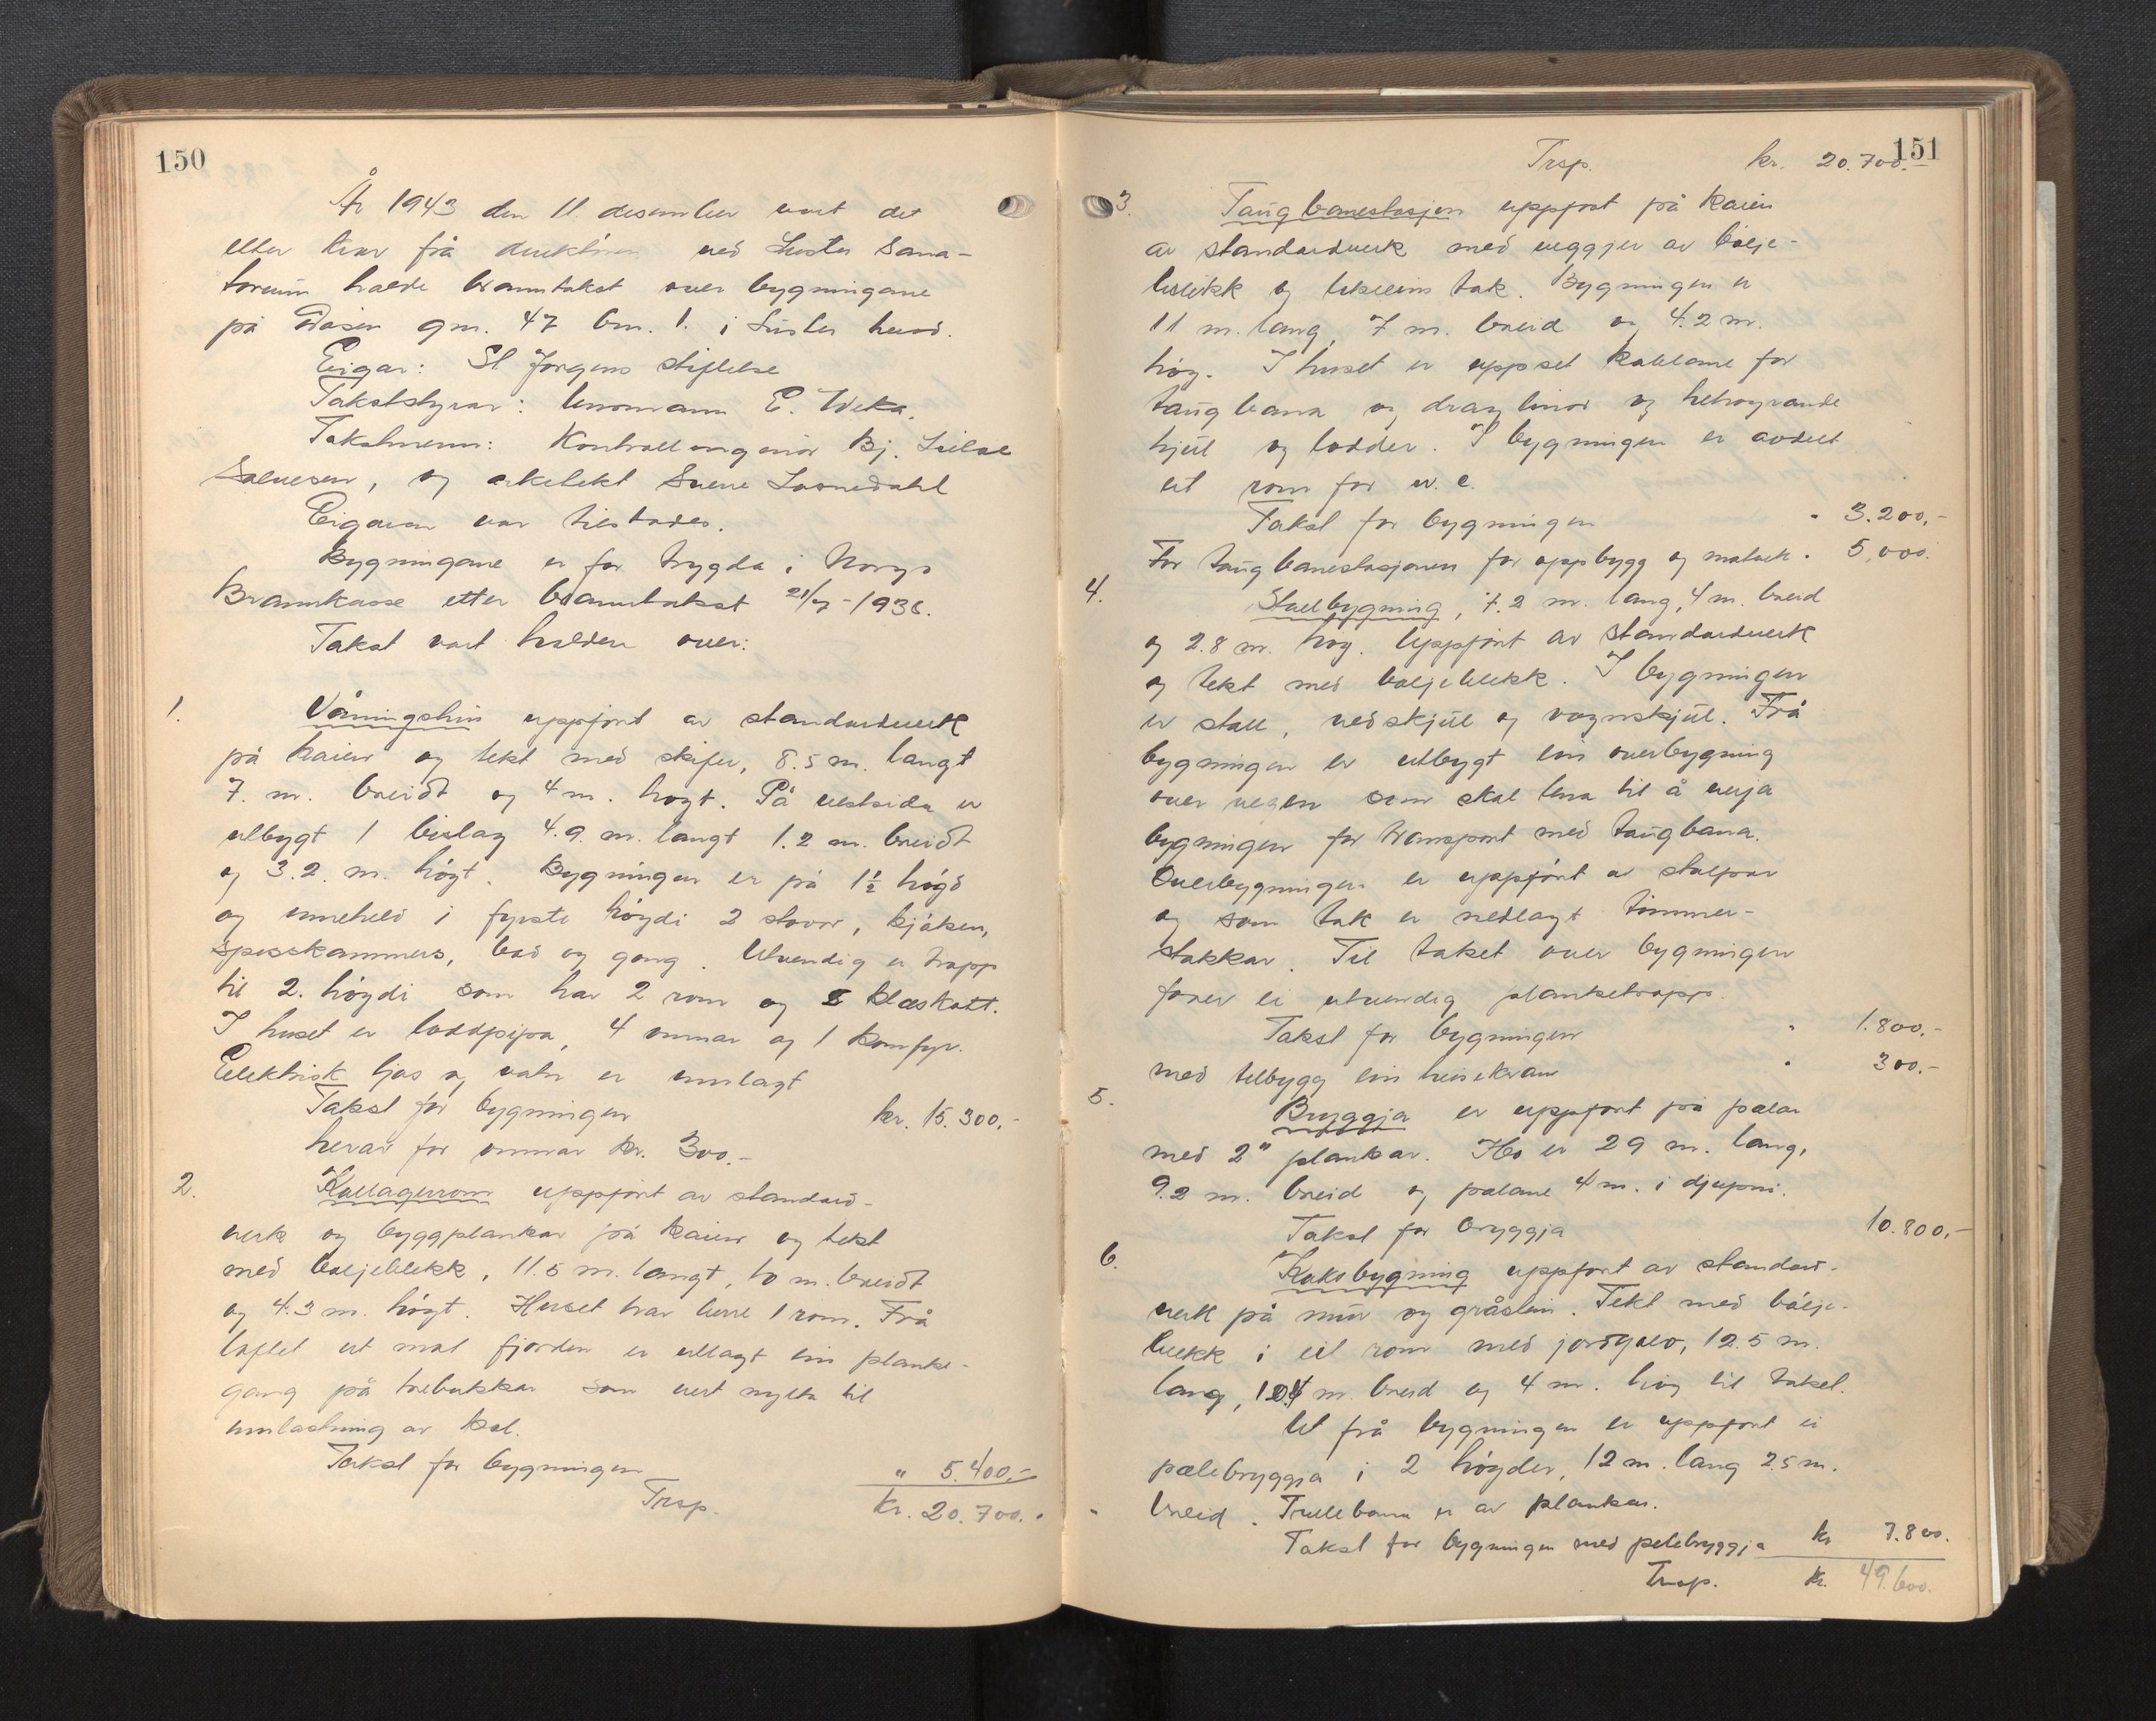 150
År 1943 den 11. desember vart det
etter krav frå direktören ved Luster Sana-
torium halde branntakst over bygningane
på gnr. 47 bnr. 1. i Luster herad.
Eigar: St Jørgens stiftelse
Takststyrar: lensmann E.
Takstmenn: Kontrollingeniør Bj.
Salvesen, og arkitekt Sverre
Eigaren var tilstades.
Bygningane er før trygda i Norges
Brannkasse etter branntakst 21/7-1936.
Takst vart halden over:
1. Våningshus uppført av standardverk
på kaien og tekt med skifer, 8.5 m. langt
7. m. breidt og 4 m. høgt. På vestsida er
utbygt 1 bislag 4.9. m. langt 1.2 m. breidt
og 3.2. m. høgt. Bygningen er på 1½ høgd
og inneheld i fyrste høgdi 2 stovor, kjøken,
spisskammers, bad og gang. Utvendig er trapp
til 2. høgdi som har 2 rom og klæskott.
I huset er loddpipa, 4 omnar og 1 komfyr.
Elektrisk ljos og vatn er innlagt
Takst for bygningen kr. 15.300,-
herav for omnar kr. 300.-
2. Kollagerrom uppført av standard-
verk og byggplankar på kaien og tekt
med bøljeblekk, 11.5 m. langt, 10 m. breidt
og 4.3 m. høgt. Huset har berre 1 rom. Frå
loftet ut mot fjorden er utlagt ein planke-
gang på trebukkar som vert nytta til
innlastning av kol.
Takst for bygningen " 5.400.-
Trsp. Kr. 20.700.-
151
Trsp. kr. 20.700.-
3. Taugbanestasjon uppført på kaien
av standardverk med veggjer av bølje-
blekk og likeeins tak. Bygningen er
11 m. lang, 7 m. breid og 4.2 m.
høg. I huset er uppset kablane for
taugbana og draglinor og tilhøyrande
hjul og lodder. I bygningen er avdelt
eit rom for w.c.
Takst for bygningen " 3.200,-
For taugbanestasjonen for oppbygg og " 5.000.
4. Stallbygning, 7.2 m. lang, 4 m. breid
og 2.8 m. høg. Uppført av standardverk
og tekt med bøljeblekk. I bygningen
er stall, vedskjul og vognskjul. Frå
bygningen er utbygt ein overbygning
over vegen som skal tena til å verja
bygningen for transport med taugbana.
Overbygningen er uppført av stolpar
og som tak er nedlagt tømmer-
stokkar. Til taket over bygningen
fører ei utvendig planketrapp.
Takst for bygningen " 1.800.-
med tilbygg ein heisekran " 300.-
5. Bryggja er uppført på pælar
med 2" plankar. Ho er 29 m. lang,
9.2 m. breid og pælane 4 m. i djupni.
Takst for bryggja 10.800,-
6. Koksbygning uppført av standard-
verk på mur og gråstein. Tekt med bølje-
blekk i eit rom med jordgolv, 12.5 m.
lang, 10.4 m. breid og 4 m. høg til taket.
Ut frå bygningen er uppført ei
pælebryggja i 2 høgder, 12 m. lang 2.5 m.
breid. Trallebana er av plankar.
Takst for bygningen med pelebryggja kr 7.800.
Trsp. Kr. 49.600.